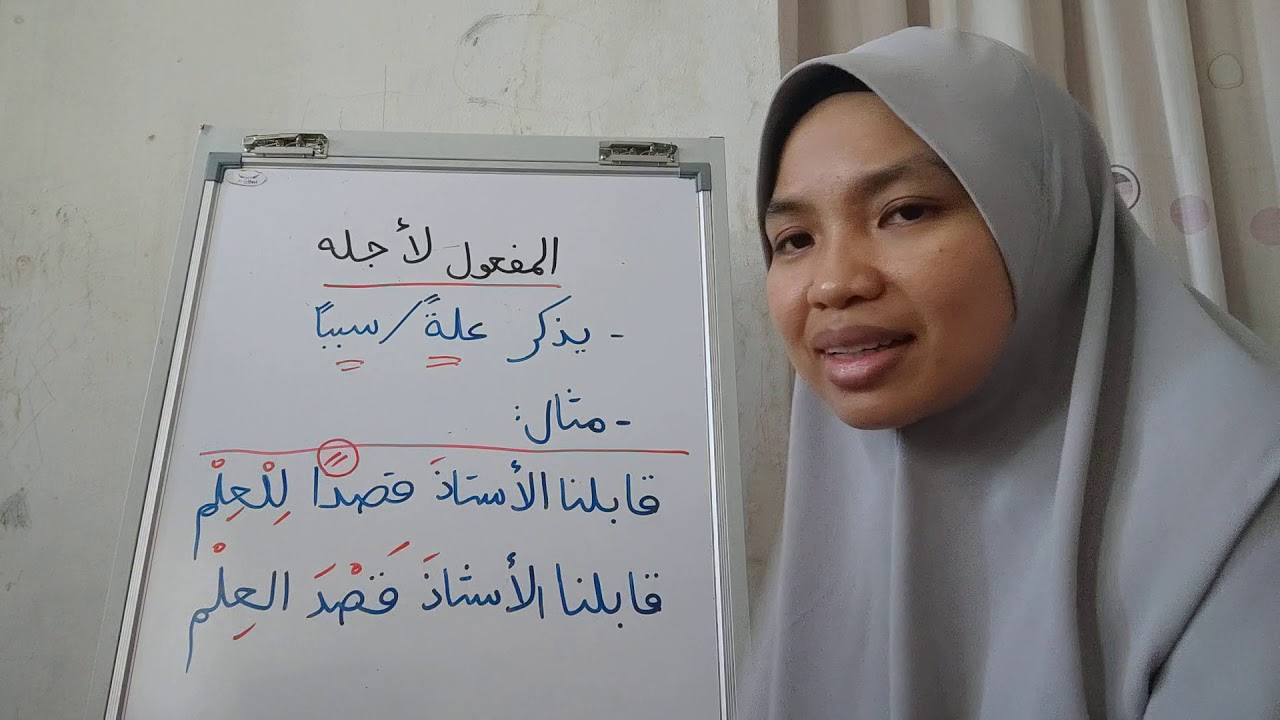 المفعول لأجله
- يذكر علةً/سببًا
- مثال:
قابلنا الأستاذَ قصدًا لِلْعِلْم
قابلنا الأستاذَ قَصْدَ العِلْم